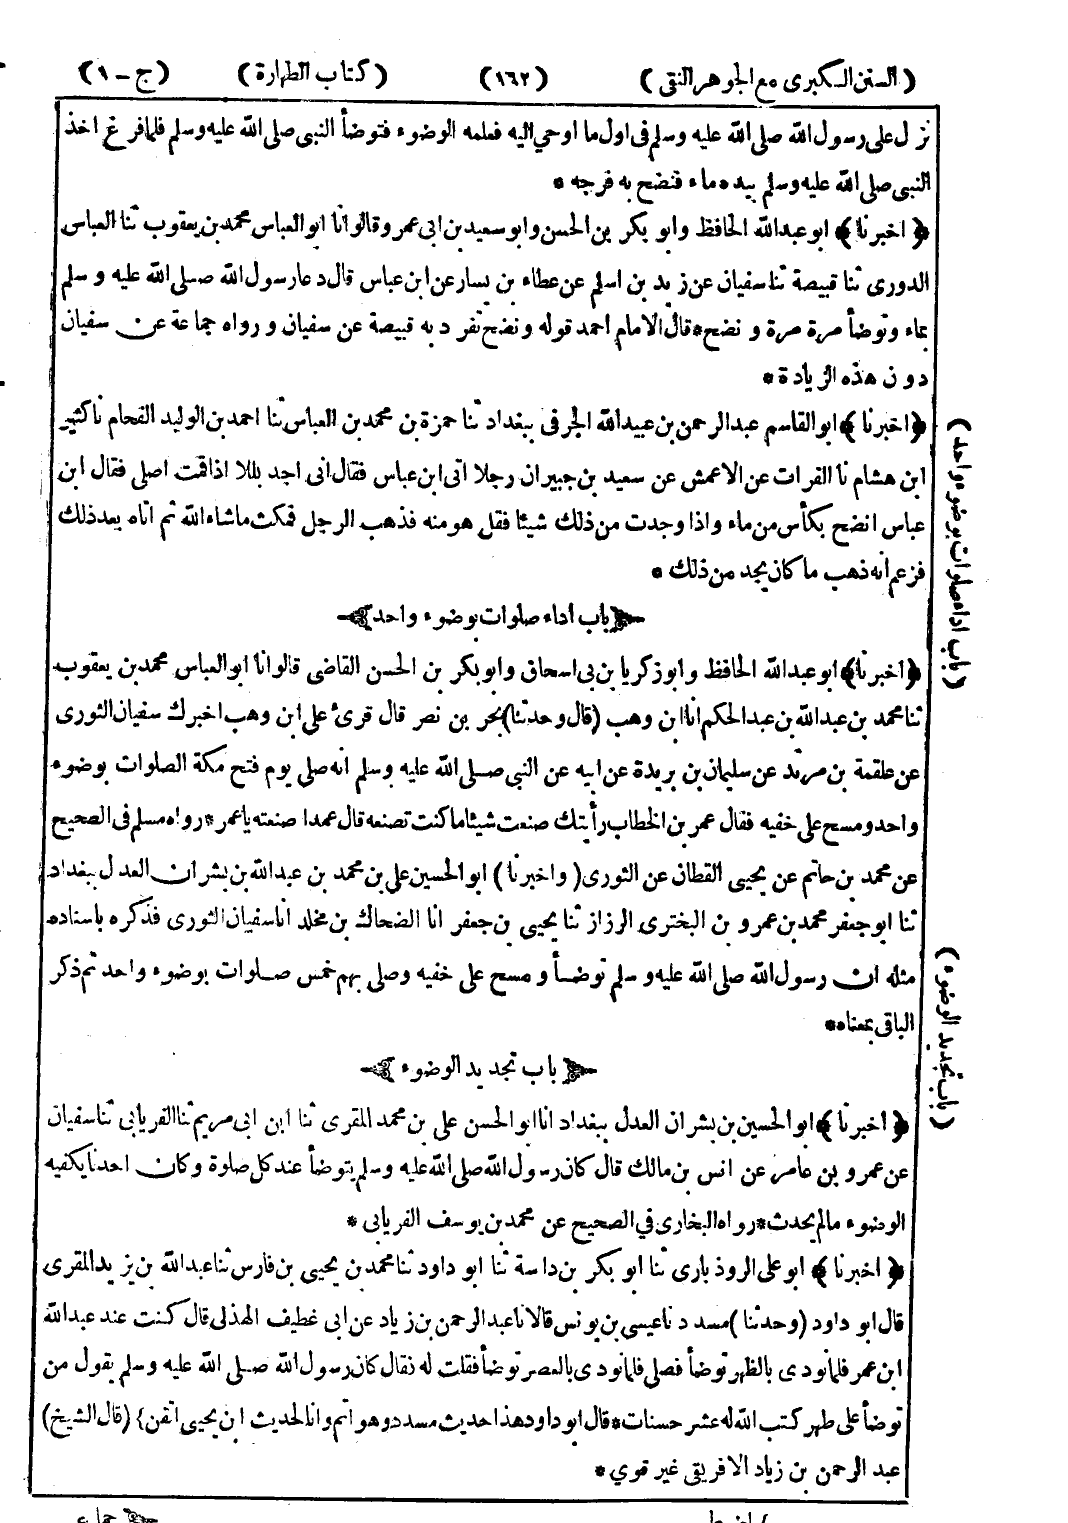 (السنن الكبرى مع الجوهر النقى) (١٦٢) (كتاب الطهارة) (ج - ١)
نزل على رسول الله صلى الله عليه وسلم فى اول ما اوحي اليه فعلمه الوضوء فتوضأ النبى صلى الله عليه وسلم فلما فرغ اخذ
النبى صلى الله عليه وسلم بيده ماء فنضح به فرجه *
﴿اخبرنا﴾ ابو عبد الله الحافظ وابو بكر بن الحسن وابو سعيد بن ابى عمرو قالوا نا ابو العباس محمد بن يعقوب ثنا العباس
الدورى ثنا قبيصة ثنا سفيان عن زيد بن اسلم عن عطاء بن يسار عن ابن عباس قال دعا رسول الله صلى الله عليه وسلم
بماء وتوضأ مرة مرة و نضح * قال الامام احمد قوله ونضح تفرد به قبيصة عن سفيان و رواه جماعة عن سفيان
دون هذه الزيادة *
﴿اخبرنا﴾ ابو القاسم عبد الرحمن بن عبيد الله الحرفى ببغداد ثنا حمزة بن محمد بن العباس ثنا احمد بن الوليد الفحام نا كثير
ابن هشام نا الفرات عن الاعمش عن سعيد بن جبير ان رجلا اتى ابن عباس فقال انى اجد بللا اذا قمت اصلى فقال ابن
عباس انضح بكأس من ماء واذا وجدت من ذلك شيئا فقل هو منه فذهب الرجل فمكث ما شاء الله ثم اتاه بعد ذلك
فزعم انه ذهب ما كان يجد من ذلك *
باب اداء صلوات بوضوء واحد
﴿اخبرنا﴾ ابو عبد الله الحافظ وابو زكريا بن بى اسحاق وابو بكر بن الحسن القاضى قالوا نا ابو العباس محمد بن يعقوب
ثنا محمد بن عبد الله بن عبد الحكم انا ابن وهب (قال وحدثنا) بحر بن نصر قال قرئ على ابن وهب اخبرك سفيان الثورى
عن علقمة بن مرثد عن سليمان بن بريدة عن ابيه عن النبى صلى الله عليه وسلم انه صلى يوم فتح مكة الصلوات بوضوء
واحد ومسح على خفيه فقال عمر بن الخطاب رأيتك صنعت شيئا ما كنت تصنعه قال عمدا صنعته يا عمر * رواه مسلم فى الصحيح
عن محمد بن حاتم عن يحيى القطان عن الثورى (واخبرنا) ابو الحسين على بن محمد بن عبد الله بن بشران العدل ببغداد
ثنا ابو جعفر محمد بن عمرو بن البخترى الرزاز ثنا يحيى بن جعفر انا الضحاك بن مخلد انا سفيان الثورى فذكره باسناده
مثله ان رسول الله صلى الله عليه و سلم توضأ و مسح على خفيه وصلى بهم خمس صلوات بوضوء واحد ثم ذكر
الباقى بمعناه *
باب تجديد الوضوء
﴿اخبرنا﴾ ابو الحسين بن بشران العدل ببغداد انا ابو الحسن على بن محمد المقرى ثنا ابن ابى مريم ثنا الفريابى ثنا سفيان
عن عمرو بن عامر عن انس بن مالك قال كان رسول الله صلى الله عليه وسلم يتوضأ عند كل صلوة وكان احدنا يكفيه
الوضوء مالم يحدث * رواه البخارى في الصحيح عن محمد بن يوسف الفريابى *
﴿اخبرنا﴾ ابو على الروذبارى ثنا ابو بكر بن داسة ثنا ابو داود ثنا محمد بن يحيى بن فارس ثنا عبد الله بن يزيد المقرى
قال ابو داود (وحدثنا) مسدد نا عيسى بن يونس قالا نا عبد الرحمن بن زياد عن ابى غطيف الهذلى قال كنت عند عبد الله
ابن عمر فلما نودى بالظهر توضأ فصلى فلما نودى بالعصر توضأ فقلت له فقال كان رسول الله صلى الله عليه وسلم يقول من
توضأ على طهر كتب الله له عشر حسنات * قال ابو داود هذا حديث مسدد وهو اتم وانا لحديث ابن يحيى اتقن} (قال الشيخ)
عبد الرحمن بن زياد الافريقى غير قوي *
(باب اداء صلوات بوضوء واحد)
(باب تجديد الوضوء)